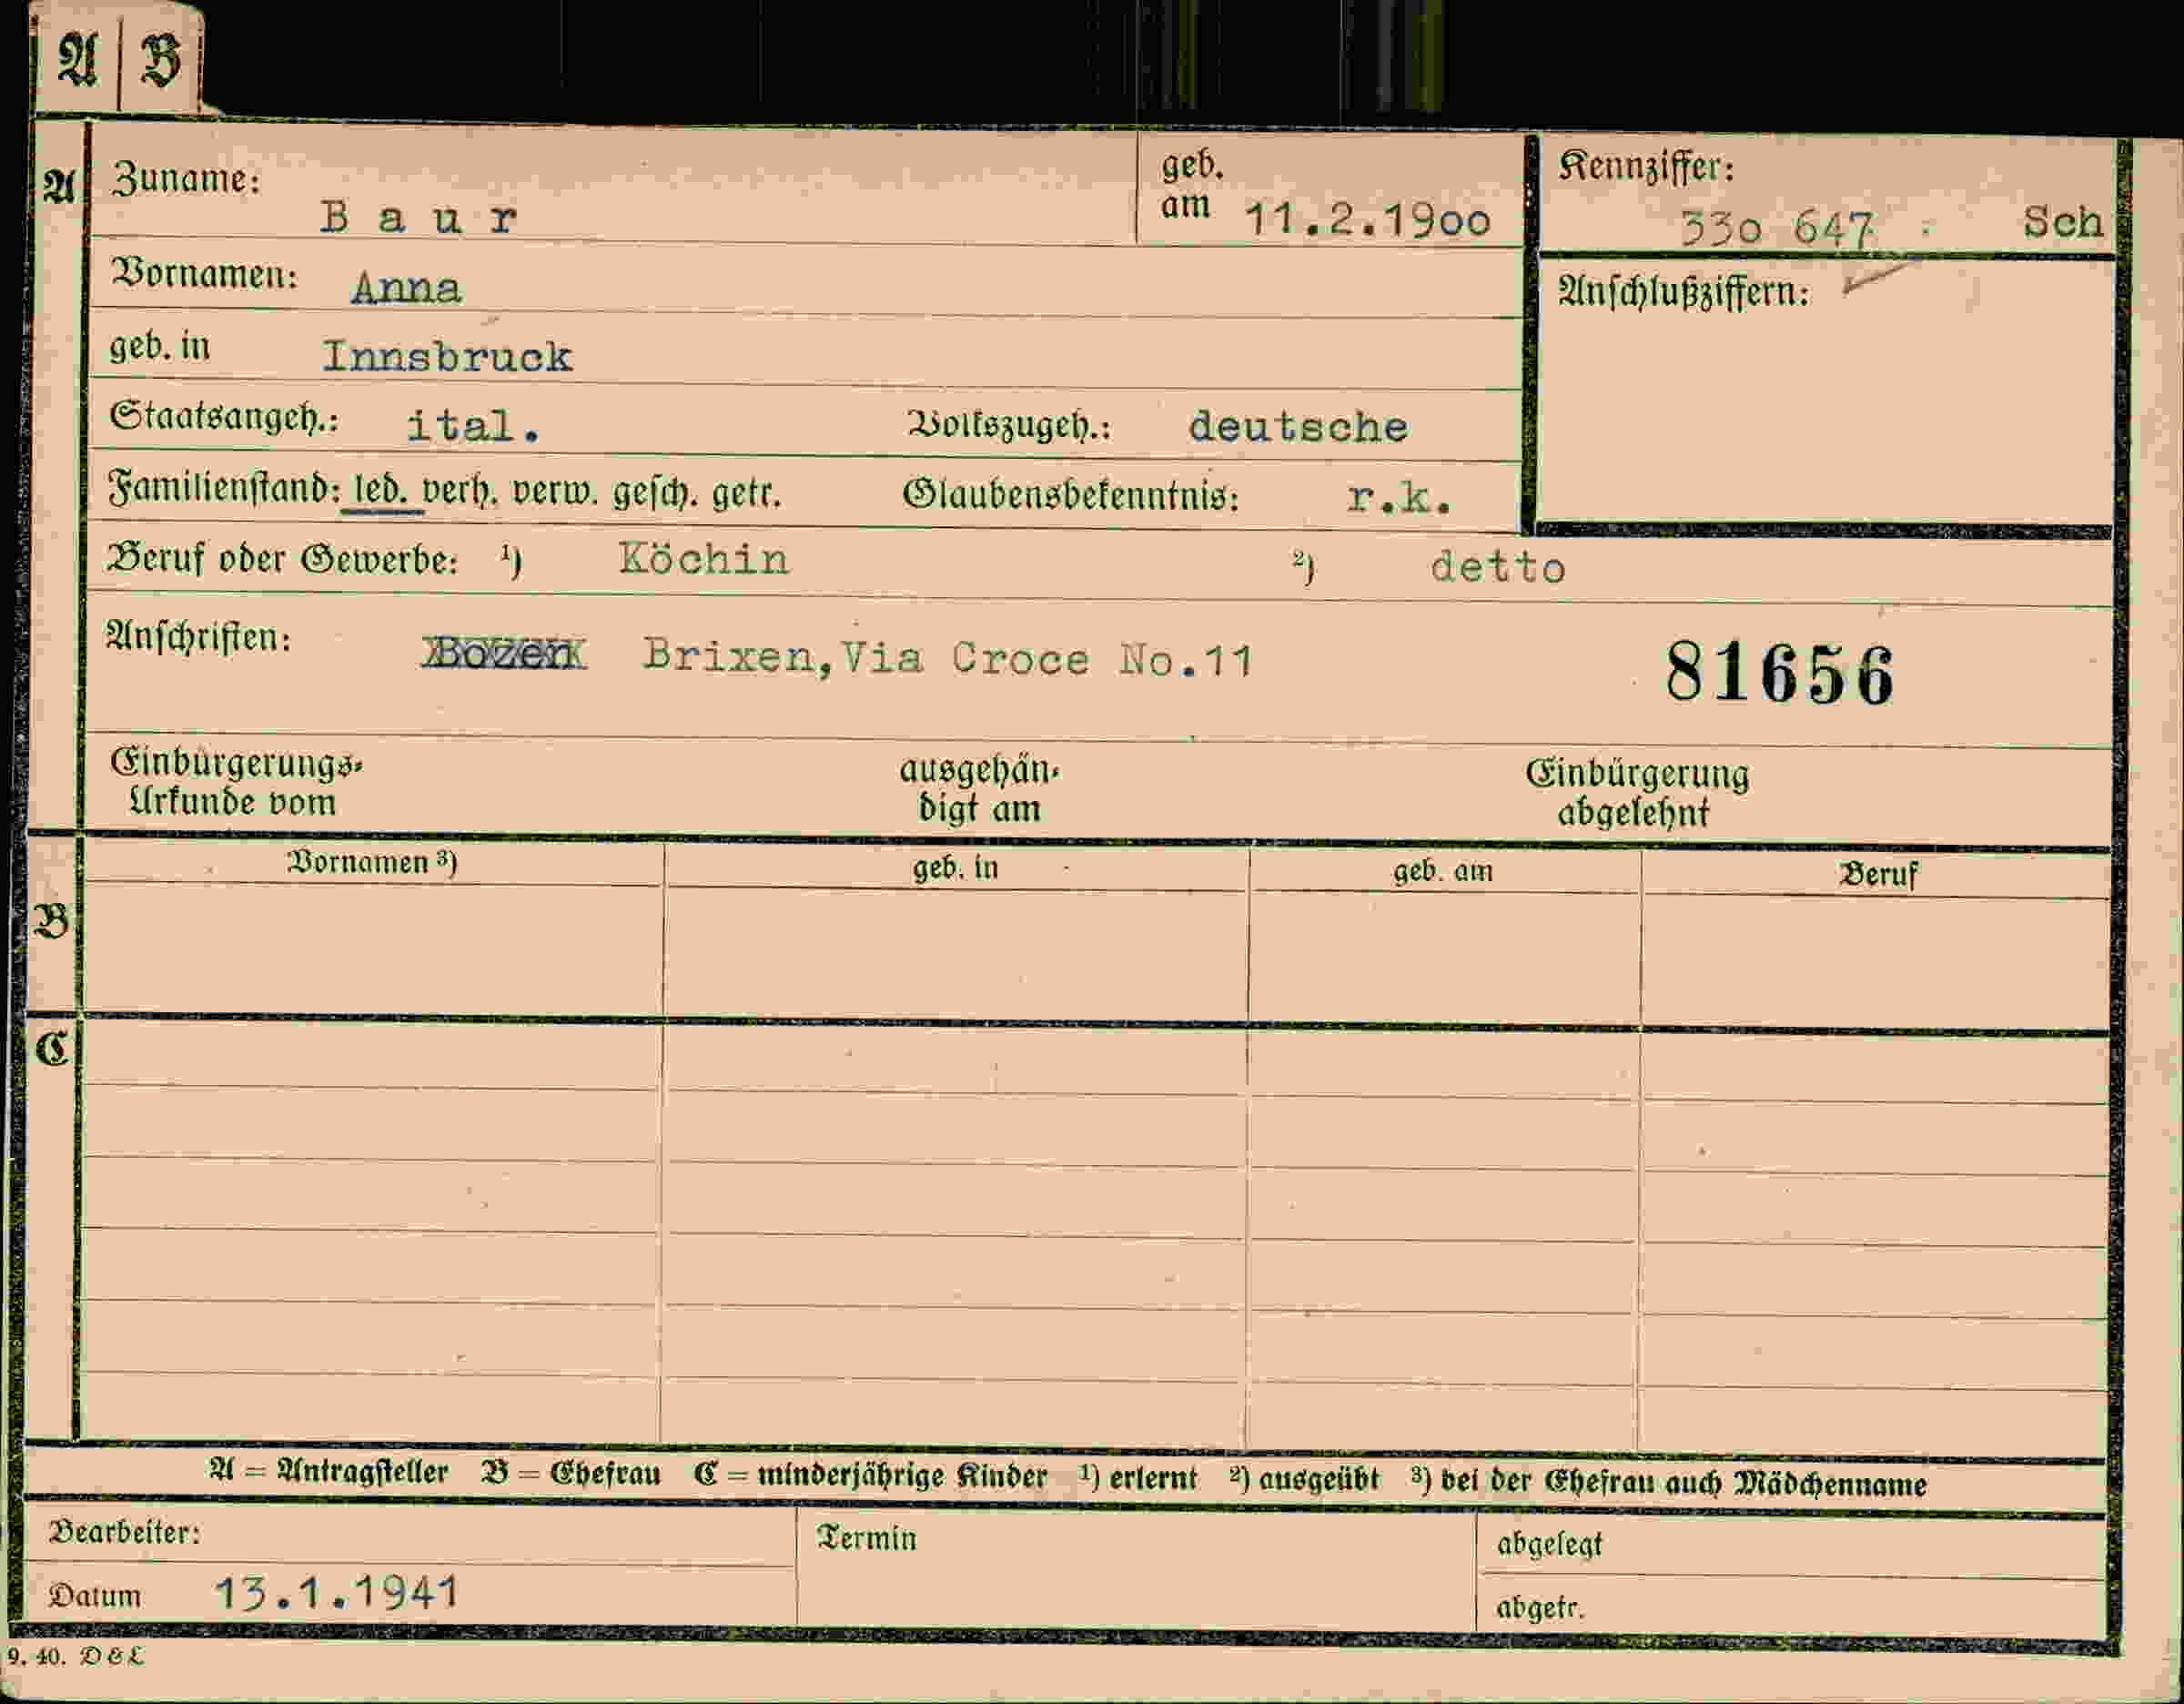 A B
A Zuname: Baur geb. am 11.2.1900 Kennziffer: 330 647 Sch
Vornamen: Anna Anschlußziffern:
geb. in Innsbruck
Staatsangeh.: ital. Volkszugeh.: deutsche
Familienstand: led. verh. verw. gesch. getr. Glaubensbekenntnis: r.k.
Beruf oder Gewerbe: 1) Köchin 2) detto
Anschriften: Bozen Brixen, Via Croce No.11 81656
Einbürgerungs- ausgehän- Einbürgerung
Urkunde vom digt am abgelehnt
Vornamen 3) geb. in geb. am Beruf
B
C
A = Antragsteller B = Ehefrau C = minderjährige Kinder 1) erlernt 2) ausgeübt 3) bei der Ehefrau auch Mädchenname
Bearbeiter: Termin abgelegt
Datum 13.1.1941 abgetr.
9. 40. D & L